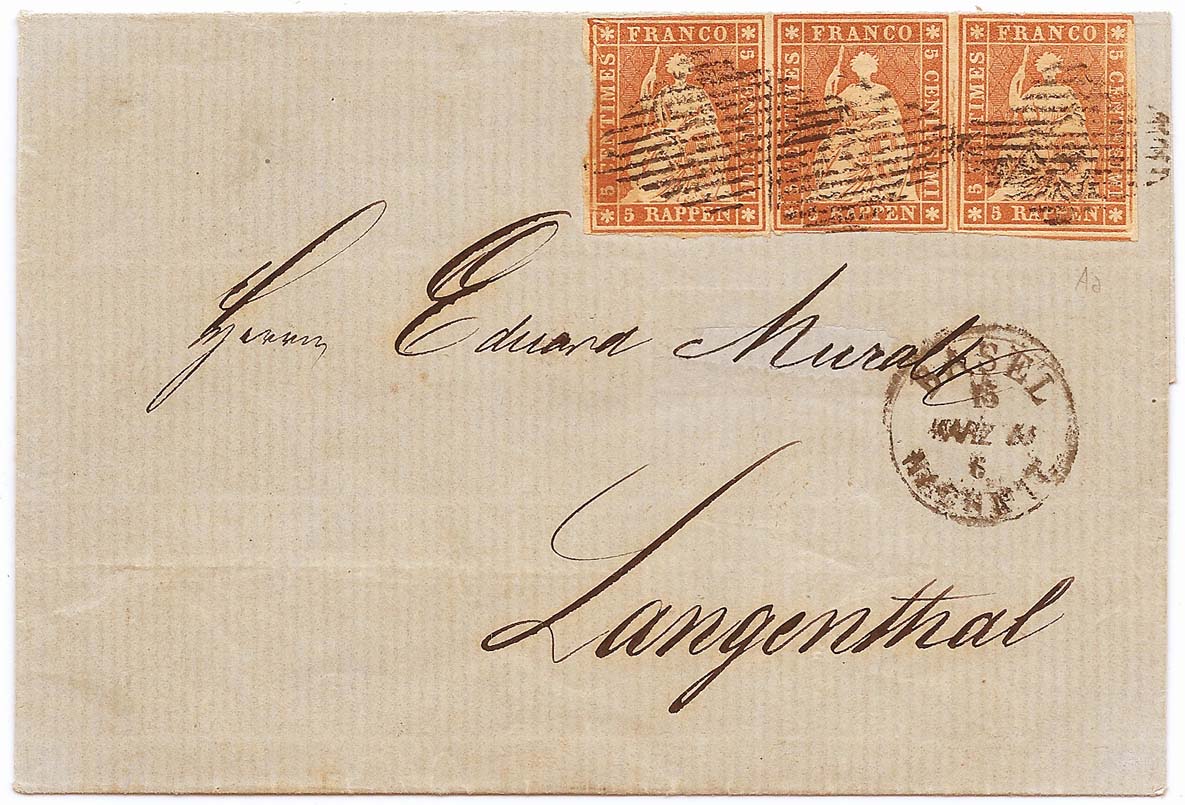 FRANCO FRANCO FRANCO
5 CENTIMES 5 CENTIMES 5 CENTIMES
5 5 CENTESIMI 5 CENTESIMI
5 RAPPEN 5 RAPPEN 5 RAPPEN
Aa
Herrn Eduard Muralt
BASEL
15
MÄRZ
6
NACHMIT.
Langenthal